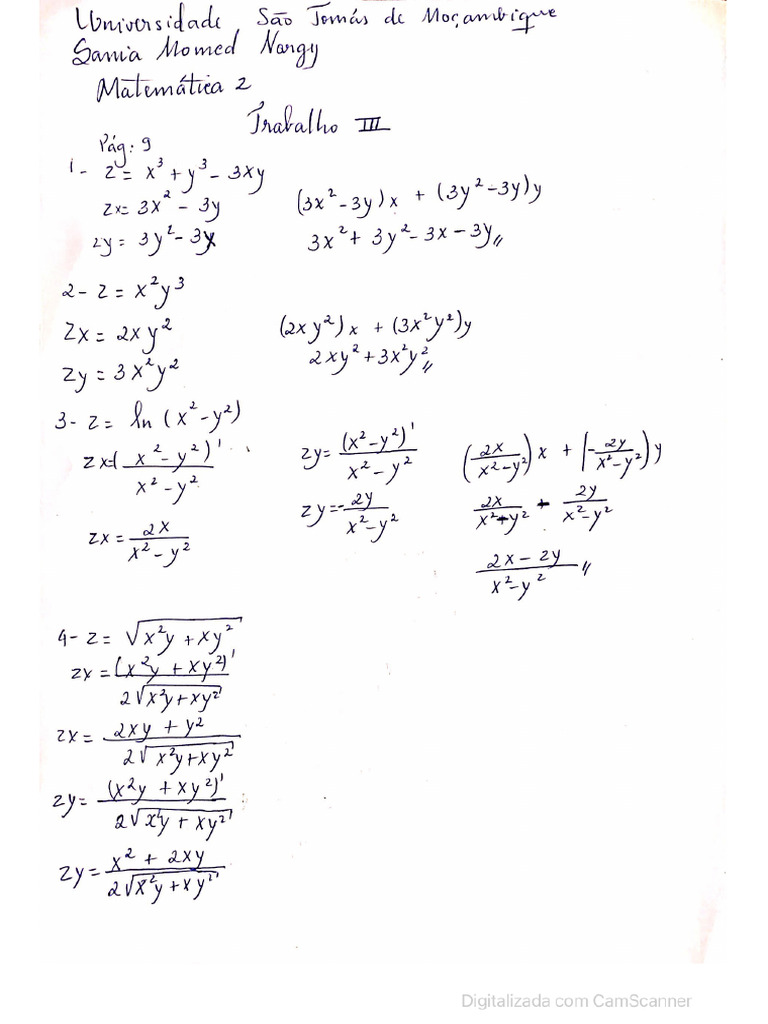 Universidade São Tomás de Moçambique
Samia Momed Nargy
Matemática 2
Trabalho III
Pág: 9
1- z = x³ + y³ - 3xy
zx = 3x² - 3y
zy = 3y² - 3x
(3x² - 3y)x + (3y² - 3y)y
3x² + 3y² - 3x - 3y //
2- z = x²y³
zx = 2xy²
zy = 3x²y²
(2xy²)x + (3x²y²)y
2xy² + 3x²y² //
3- z = ln (x² - y²)
zx = (x² - y²)' / x² - y²
zx = 2x / x² - y²
zy = (x² - y²)' / x² - y²
zy = -2y / x² - y²
(2x / x² - y²)x + (-2y / x² - y²)y
2x / x² - y² - 2y / x² - y²
2x - 2y / x² - y² //
4- z = √x²y + xy²
zx = (x²y + xy²)' / 2√x²y + xy²
zx = 2xy + y² / 2√x²y + xy²
zy = (x²y + xy²)' / 2√x²y + xy²
zy = x² + 2xy / 2√x²y + xy²
Digitalizada com CamScanner